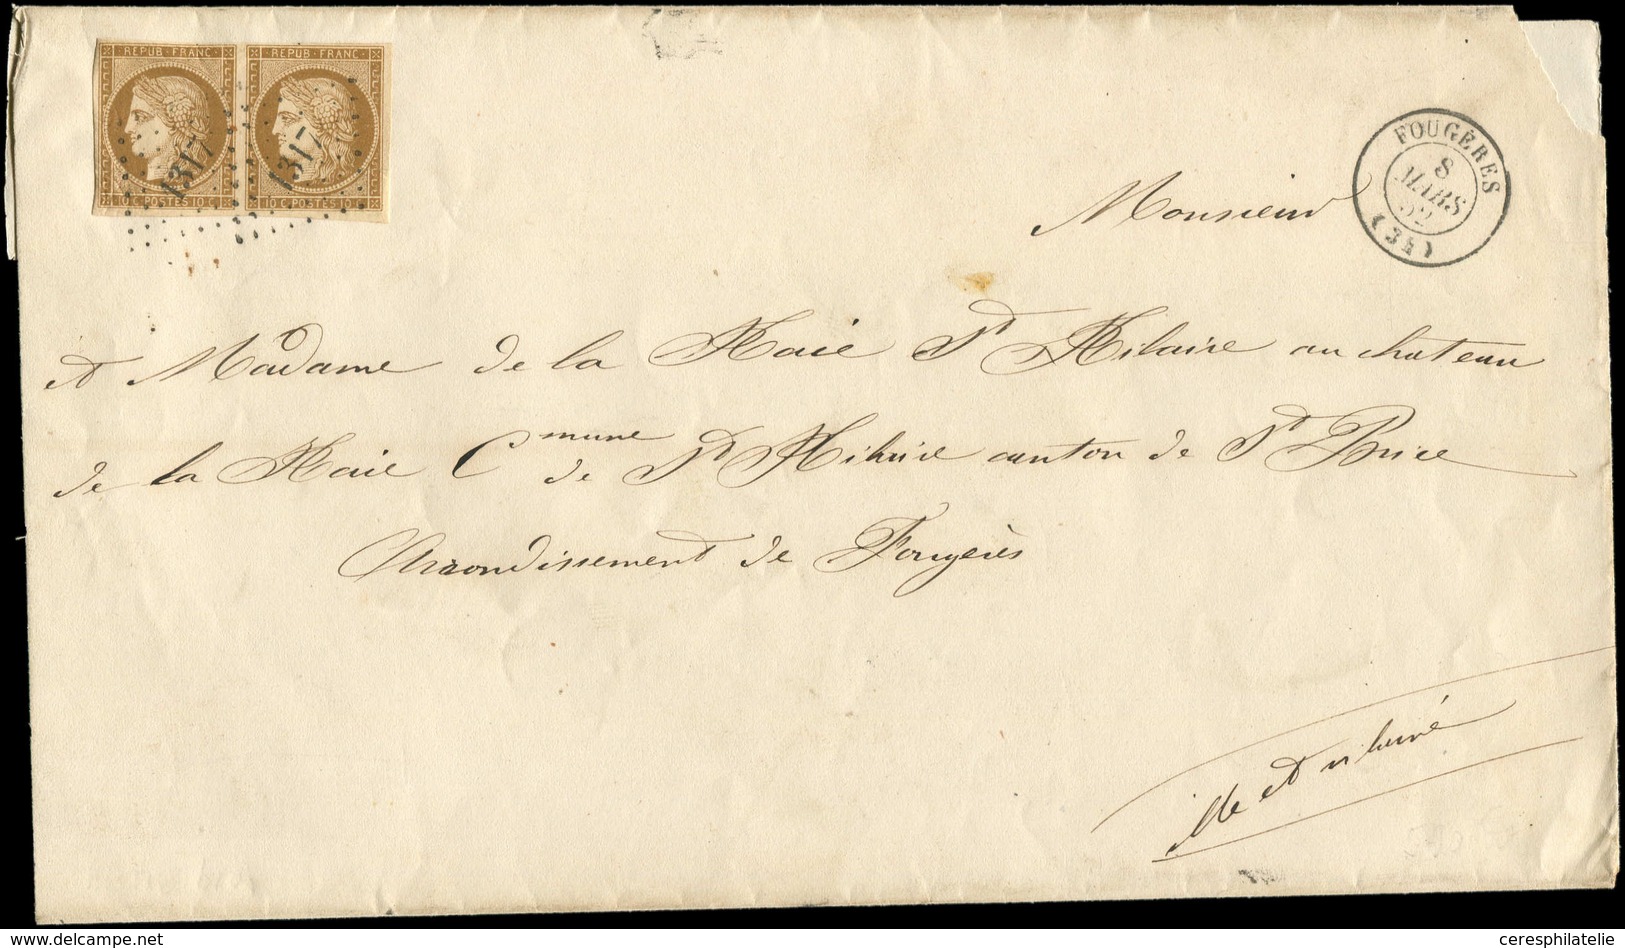 REPUB·FRANC· REPUB·FRANC·
1317 1317
10 C·POSTES 10 C· 10 C·POSTES 10 C·
FOUGÈRES
8
MARS
52
(34)
Monsieur
et Madame de la Haie St Hilaire au chateau
de la Haie Cmmune de St Hilaire canton de St Brice
Arrondissement de Fougères
ille et vilaine
ceresphilatelie